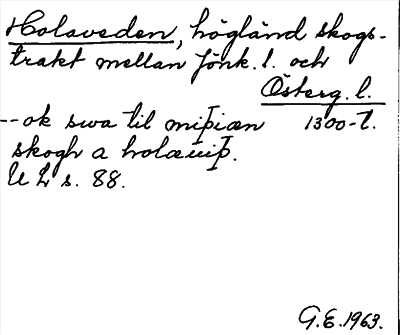 Holaveden, högländ skogs-
trakt mellan Jönk. l. och
Österg. l.
--ok swa til miþiæn 1300-t.
skogh a holæuiþ.
U L s. 88.
G.E. 1963.